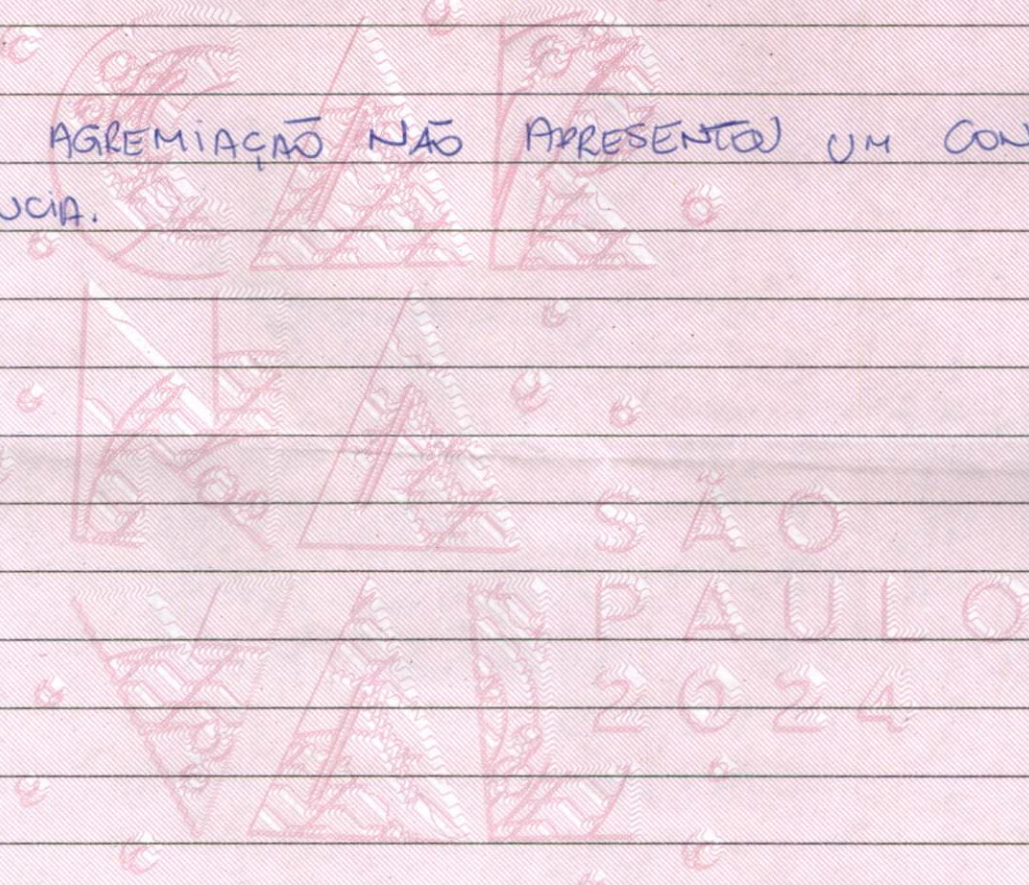 AGREMIAÇÃO NÃO APRESENTOU UM CON
NCIA.
CAR
NA
SÃO
VAL
PAULO
2024